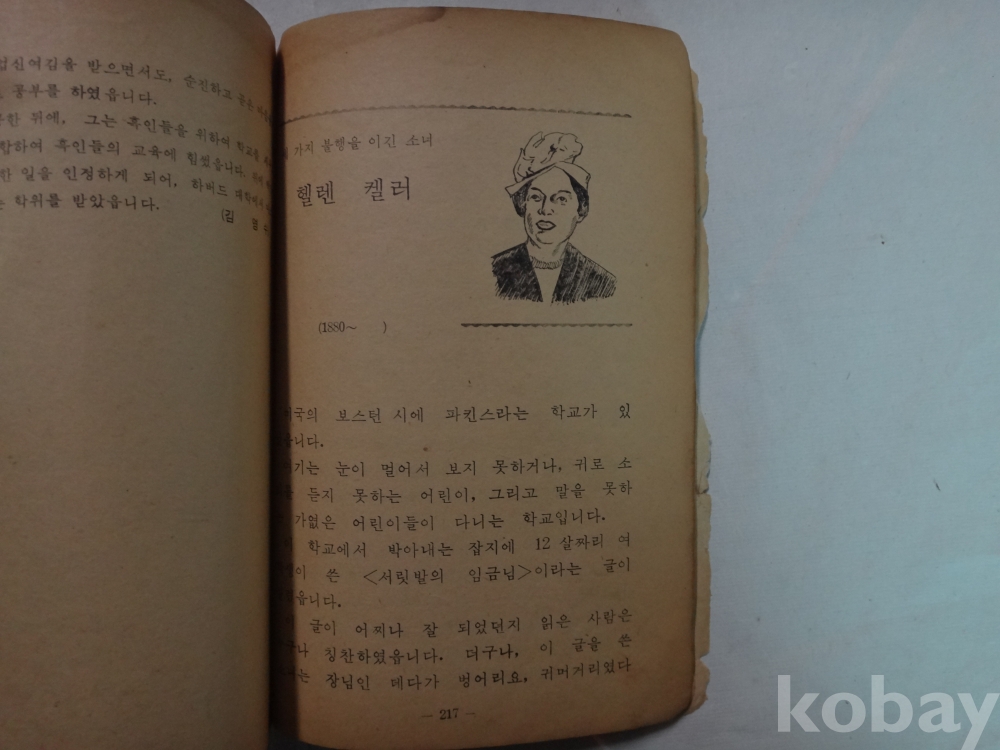 업신여김을 받으면서도, 순진하고
공부를 하였읍니다.
뒤에, 그는 흑인들을 위하여 학교를
합하여 흑인들의 교육에 힘썼읍니다.
한 일을 인정하게 되어, 하버드
학위를 받았읍니다.
(김
가지 불행을 이긴 소녀
헬렌 켈러
(1880~ )
미국의 보스턴 시에 파킨스라는 학교가 있
읍니다.
기는 눈이 멀어서 보지 못하거나, 귀로 소
를 듣지 못하는 어린이, 그리고 말을 못하
가엾은 어린이들이 다니는 학교입니다.
학교에서 박아내는 잡지에 12 살짜리 여
쓴 <서릿발의 임금님>이라는 글이
읍니다.
글이 어찌나 잘 되었던지 읽은 사람은
구나 칭찬하였읍니다. 더구나, 이 글을 쓴
는 장님인 데다가 벙어리요, 귀머거리였다
— 217 —
kobay